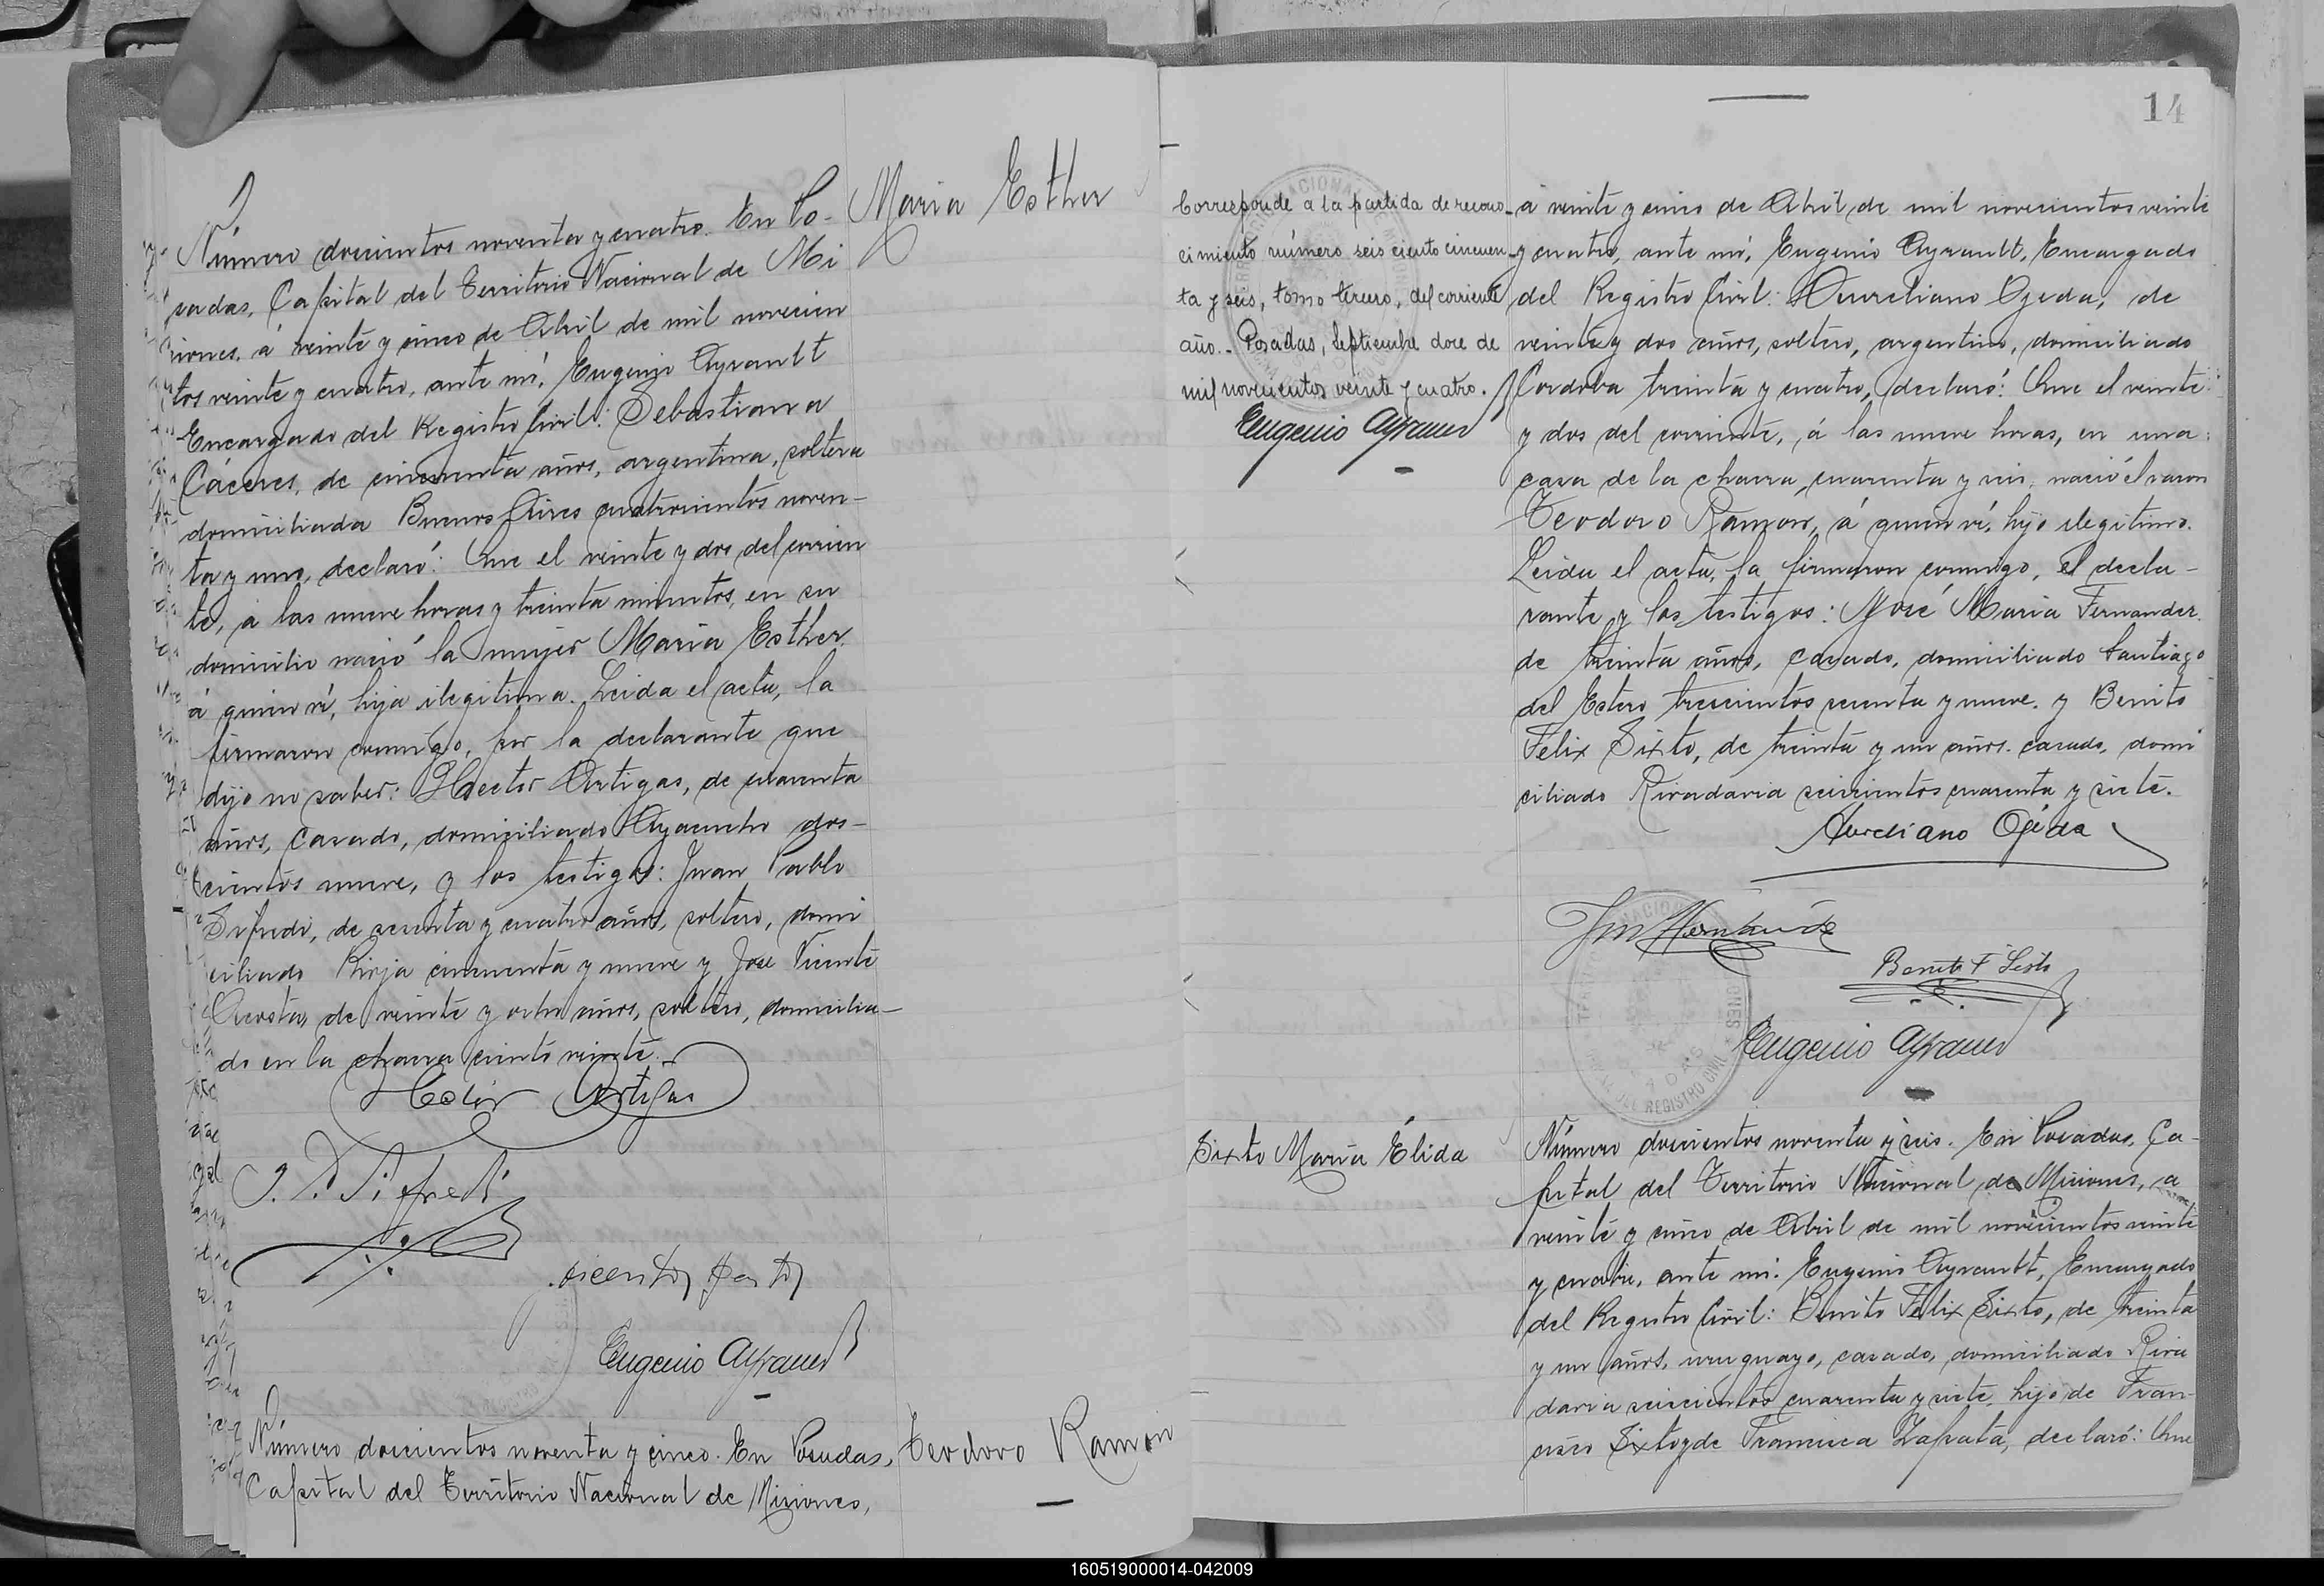 Maria Esther
Número doscientos noventa y cuatro. En Po-
sadas, Capital del Territorio Nacional de Mi
siones, á veinte y cinco de Abril de mil novecien
tos veinte y cuatro, ante mí, Eugenio Ayrault
Encargado del Registro Civil: Sebastiana
Cáceres, de cincuenta años, argentina, soltera
domiciliada Buenos Aires cuatrocientos noven-
ta y uno, declaró: Que el veinte y dos del corrien
te, á las nueve horas y treinta minutos, en su
domicilio nació la mujer Maria Esther,
á quien ví, hija ilegitima. Leida el acta, la
firmaron conmigo, por la declarante que
dijo no saber: Hector Artigas, de cuarenta
años, casado, domiciliado Ayacucho dos-
cientos nueve, y los testigos: Juan Pablo
Sifredi, de sesenta y cuatro años, soltero, domi
ciliado Rioja cincuenta y nueve y José Vicente
Acosta, de veinte y ocho años, soltero, domicilia-
do en la chacra ciento veinte.
Hector Artigas
J. P. Sifredi
Eugenio Ayrault
Número doscientos noventa y cinco. En Posadas,
Capital del Territorio Nacional de Misiones,
Teodoro Ramón
14
Corresponde a la partida de recono-
cimiento número seis ciento cincuen-
ta y seis, tomo tercero, del corriente
año.- Posadas, Septiembre doce de
mil novecientos veinte y cuatro.
Eugenio Ayrault
á veinte y cinco de Abril de mil novecientos veinte
y cuatro, ante mí, Eugenio Ayrault, Encargado
del Registro Civil: Aureliano Ojeda, de
veinte y dos años, soltero, argentino, domiciliado
Cordoba treinta y cuatro, declaró: Que el veinte
y dos del corriente, á las nueve horas, en una
casa de la chacra, cuarenta y seis, nació el varon
Teodoro Ramon, á quien ví, hijo ilegitimo.
Leida el acta, la firmaron conmigo, el decla-
rante y los testigos: José Maria Fernandez
de treinta años, casado, domiciliado Santiago
del Estero trescientos sesenta y nueve, y Benito
Felix Sixto, de treinta y un años, casado, domi
ciliado Rivadavia seiscientos cuarenta y siete.
Aureliano Ojeda
J M Hernández
Benito F Sixto
Eugenio Ayrault
Sixto María Élida
Número doscientos noventa y seis. En Posadas, Ca-
pital del Territorio Nacional de Misiones, a
veinte y cinco de Abril de mil novecientos veinte
y cuatro, ante mí: Eugenio Ayrault, Encargado
del Registro Civil: Benito Felix Sixto, de treinta
y un años, uruguayo, casado, domiciliado Riva
davia seiscientos cuarenta y siete, hijo de Fran-
cisco Sixto y de Francisca Zapata, declaró: Que
160519000014-042009